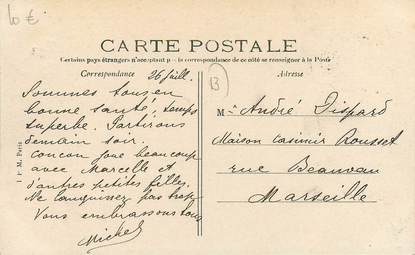 10 €
CARTE POSTALE
Certains pays étrangers n'acceptant pas la correspondance de ce côté se renseigner à la Poste
Correspondance
Adresse
26 Juill.
Sommes tous en
bonne santé, temps
superbe. Partirons
demain soir.
joue beaucoup
avec Marcelle et
d'autres petites filles.
Ne languissez pas trop
Vous embrassons tous
Michel
13
M. André Dispard
Maison Casimir Rousset
rue Beauvau
Marseille
M. Paris